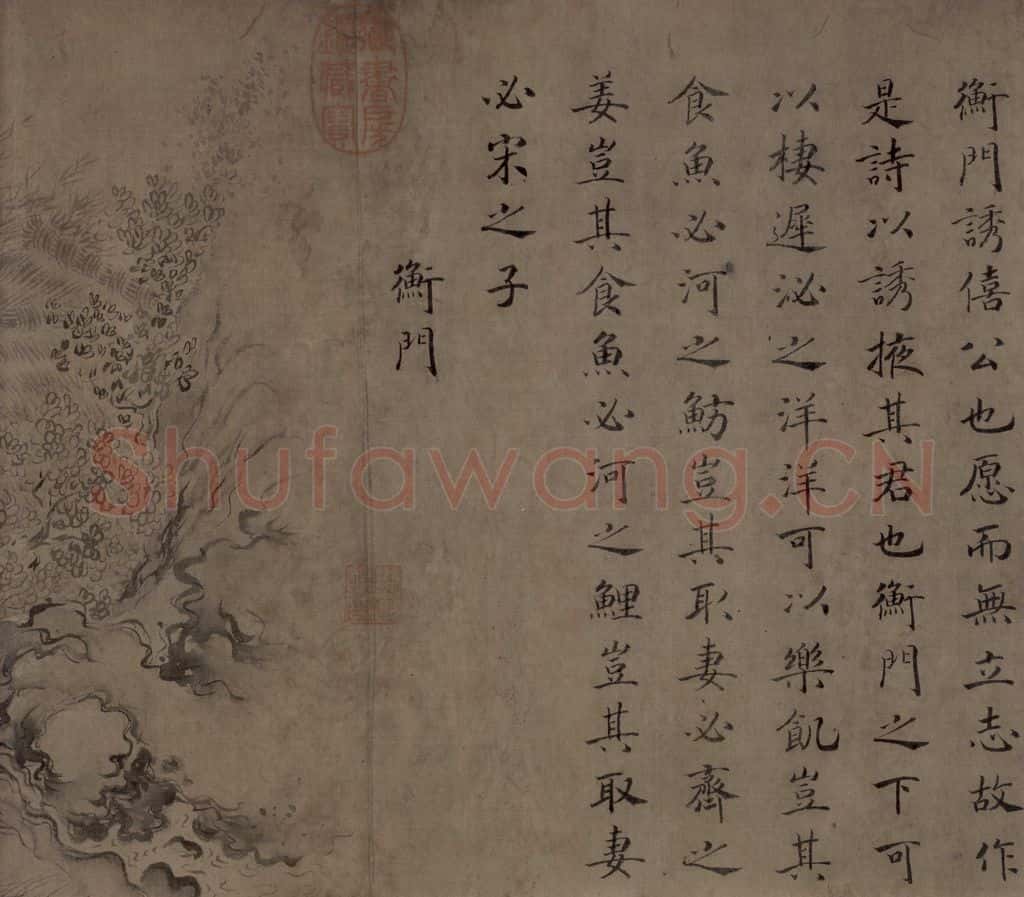 衡門誘僖公也愿而無立志故作
是詩以誘掖其君也衡門之下可
以棲遲泌之洋洋可以樂飢豈其
食魚必河之魴豈其取妻必齊之
姜豈其食魚必河之鯉豈其取妻
必宋之子
衡門
Shufawang.CN